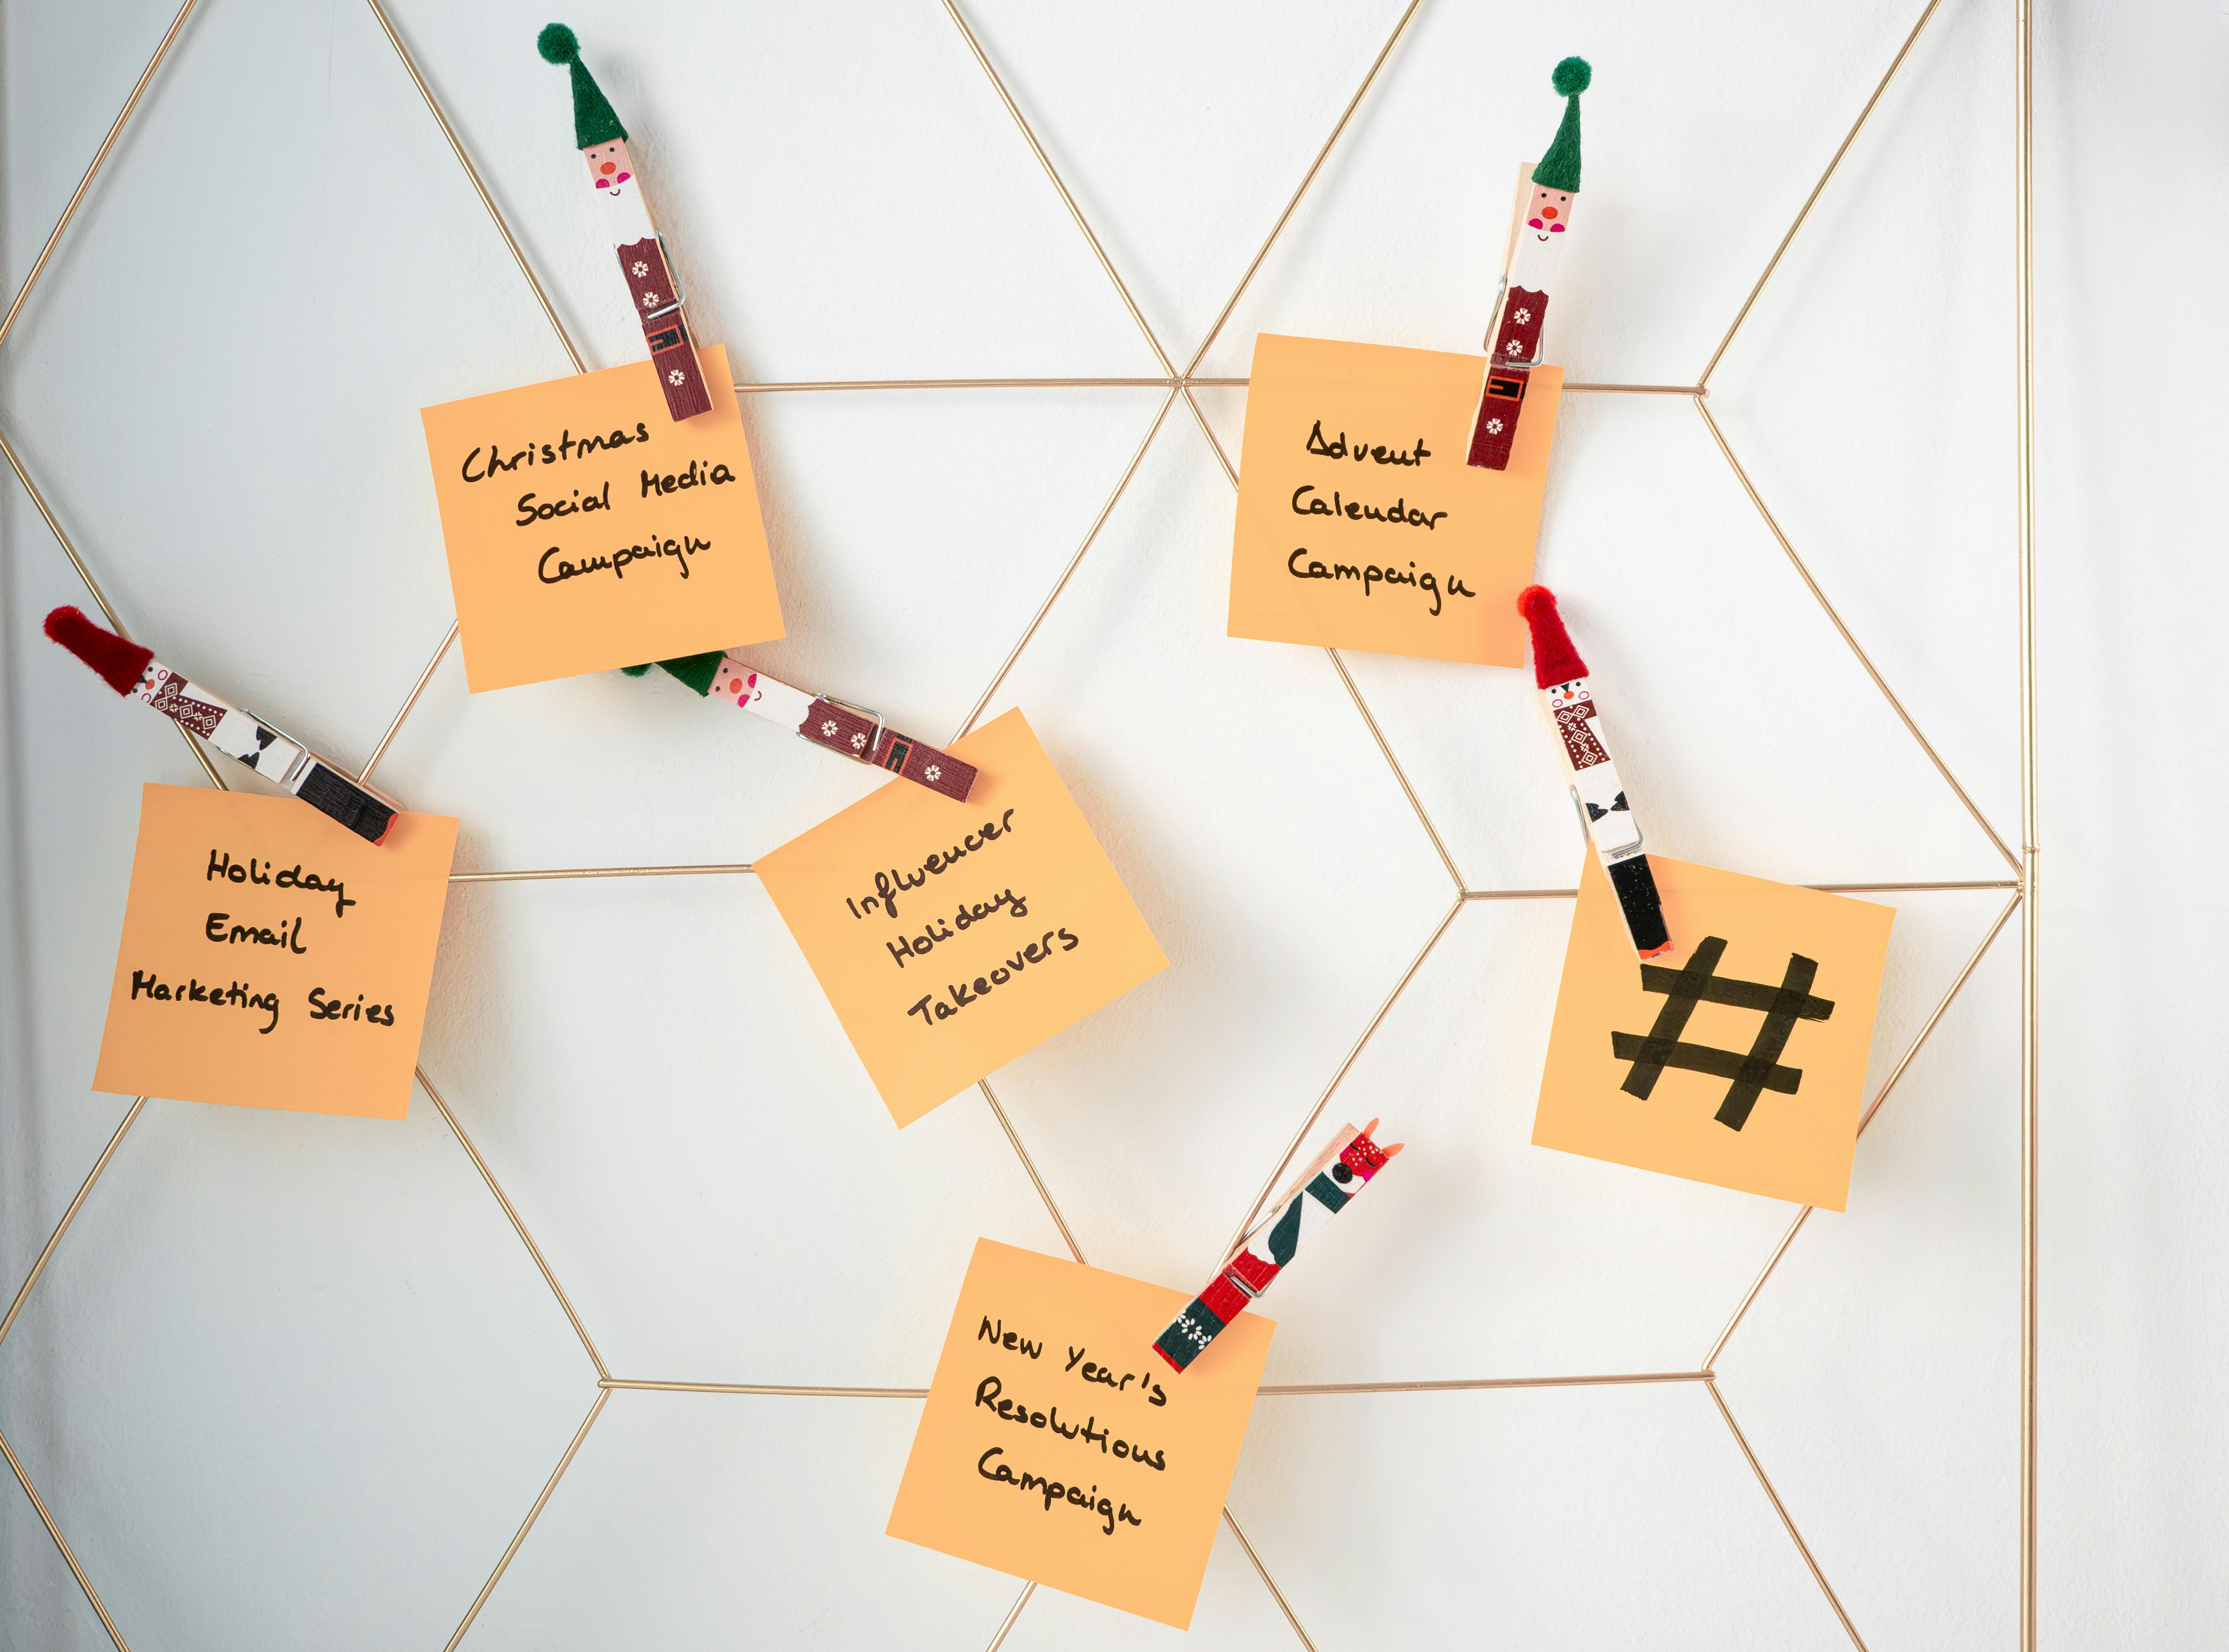 Christmas
Social Media
Campaign
Advent
Calendar
Campaign
Holiday
Email
Marketing Series
Influencer
Holiday
Takeovers
#
New Year's
Resolutions
Campaign